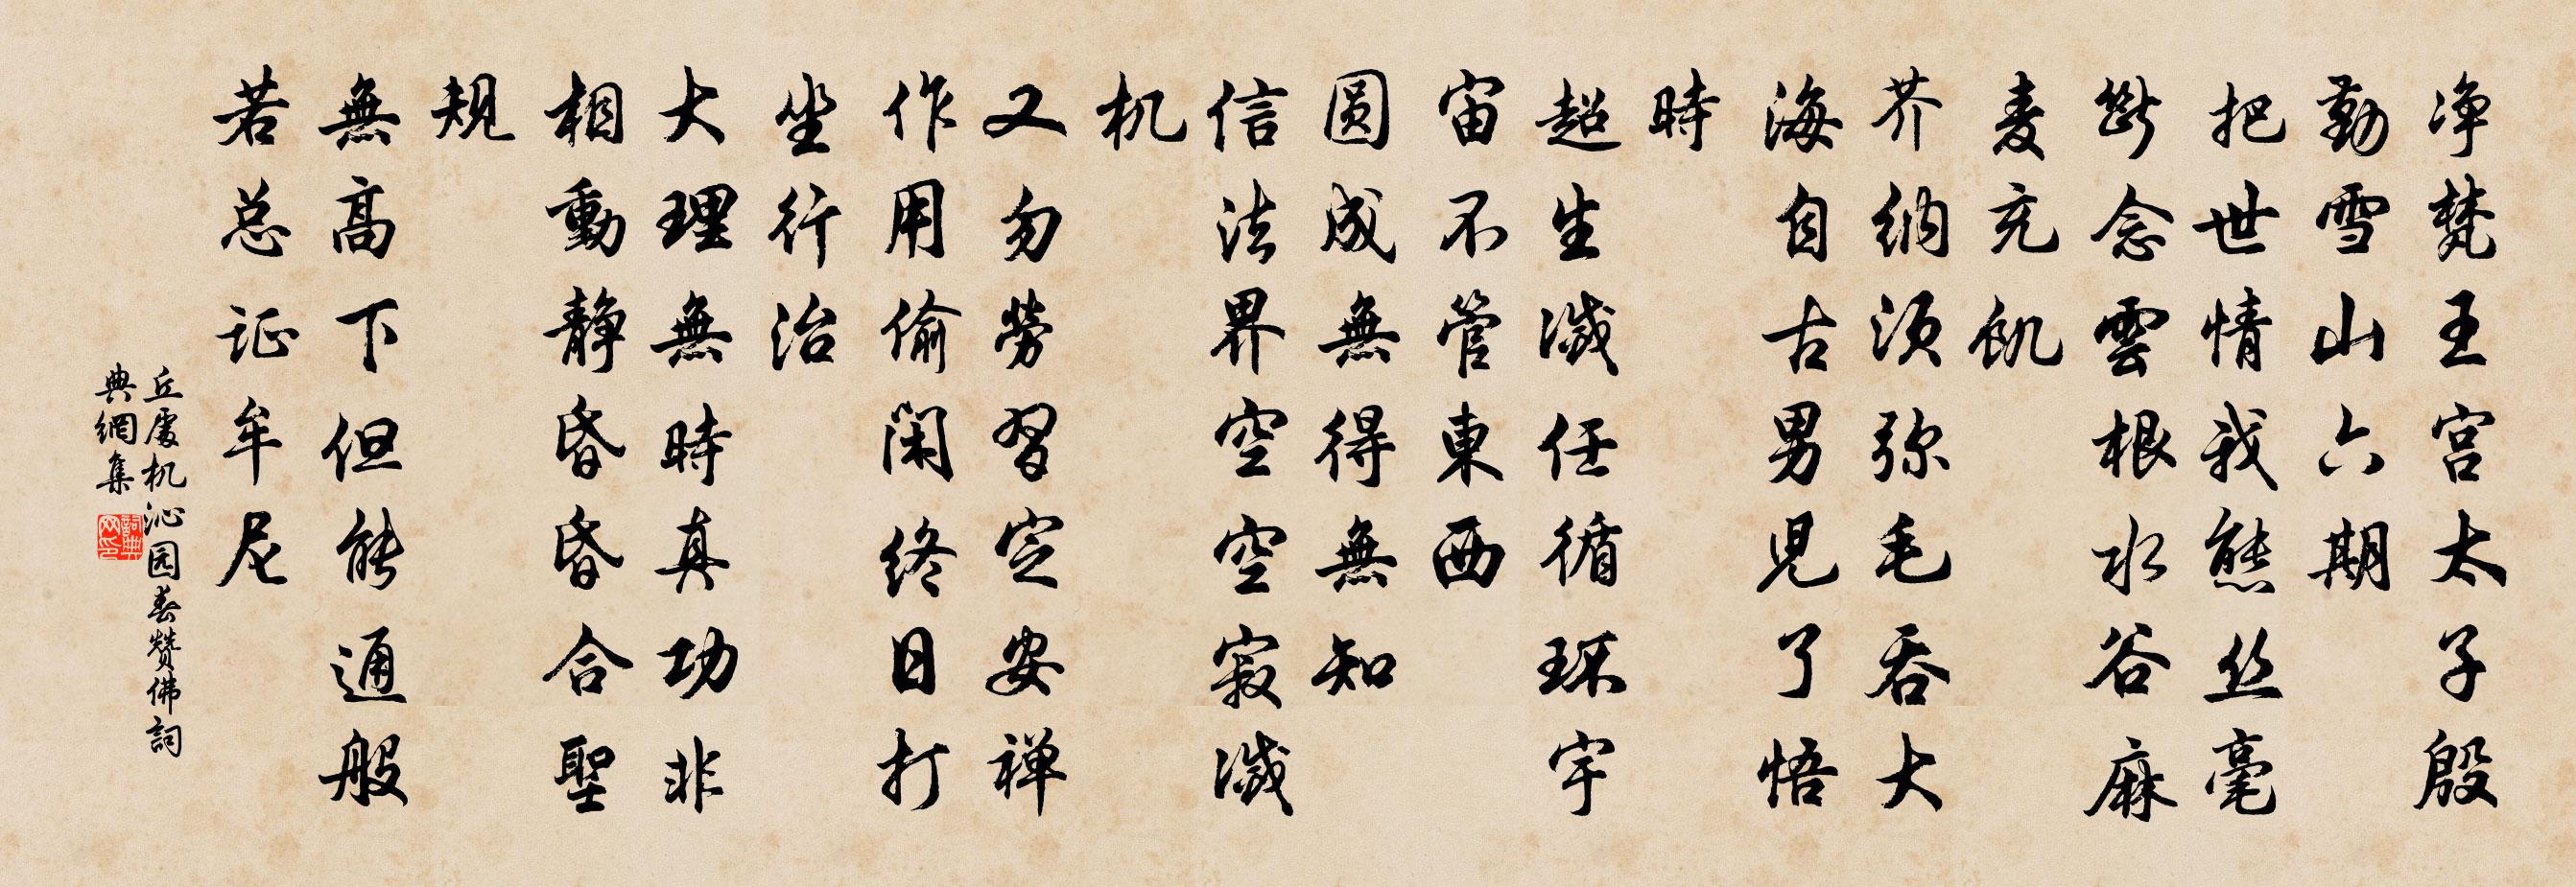 净梵王宫太子殷
勤雪山六期
把世情我態丝毫
斷念雲根水谷麻
麦充飢
芥纳须弥毛吞大
海自古男児了悟
時
超生滅任循环宇
宙不管東西
圆成無得無知
信法界空空寂滅
机
又勿劳習定安禅
作用偷闲终日打
坐行治
大理無時真功非
相動静昏昏合聖
規
無高下但能通般
若总证牟尼
丘處机沁园春赞佛詞
典網集
詞典网印